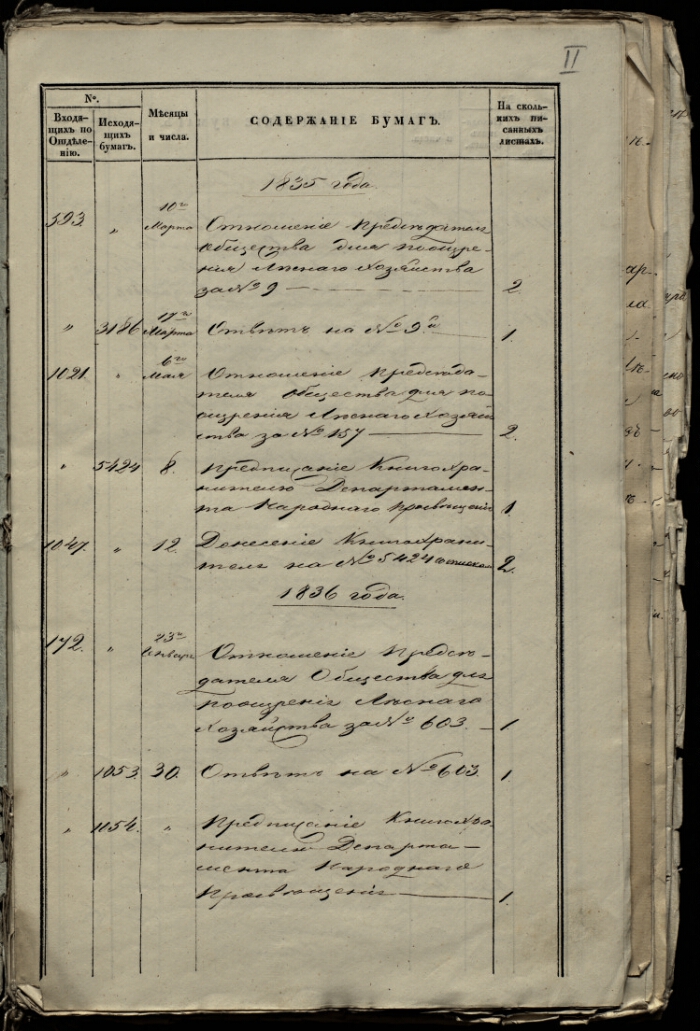 II
№.
Входящихъ по Отдѣленію.
Исходящихъ бумагъ.
Мѣсяцы и числа.
СОДЕРЖАНІЕ БУМАГЪ.
На сколькихъ писанныхъ листахъ.
1835 года.
393. " 10го Марта Отношеніе Предсѣдателя
общества для поощре-
нія Лѣснаго Хозяйства
за № 9 2.
" 3186 17го Марта Отвѣтъ на № 9й 1.
1021. " 6го Мая Отношеніе Предсѣда-
теля общества для по-
ощренія Лѣснаго Хозяй-
ства за № 157 2.
" 5424 8. Предписаніе Книгохра-
нителю Департамен-
та Народнаго Просвѣщенія 1
1047. " 12. Донесеніе Книгохрани-
теля на № 5424 2.
1836 года.
172. " 23го Января Отношеніе Предсѣ-
дателя Общества для
поощренія Лѣснаго
Хозяйства за № 603. 1.
" 1053. 30. Отвѣтъ на № 603. 1
" 1054. " Предписаніе Книгохра-
нителю Департа-
мента Народнаго
Просвѣщенія 1.